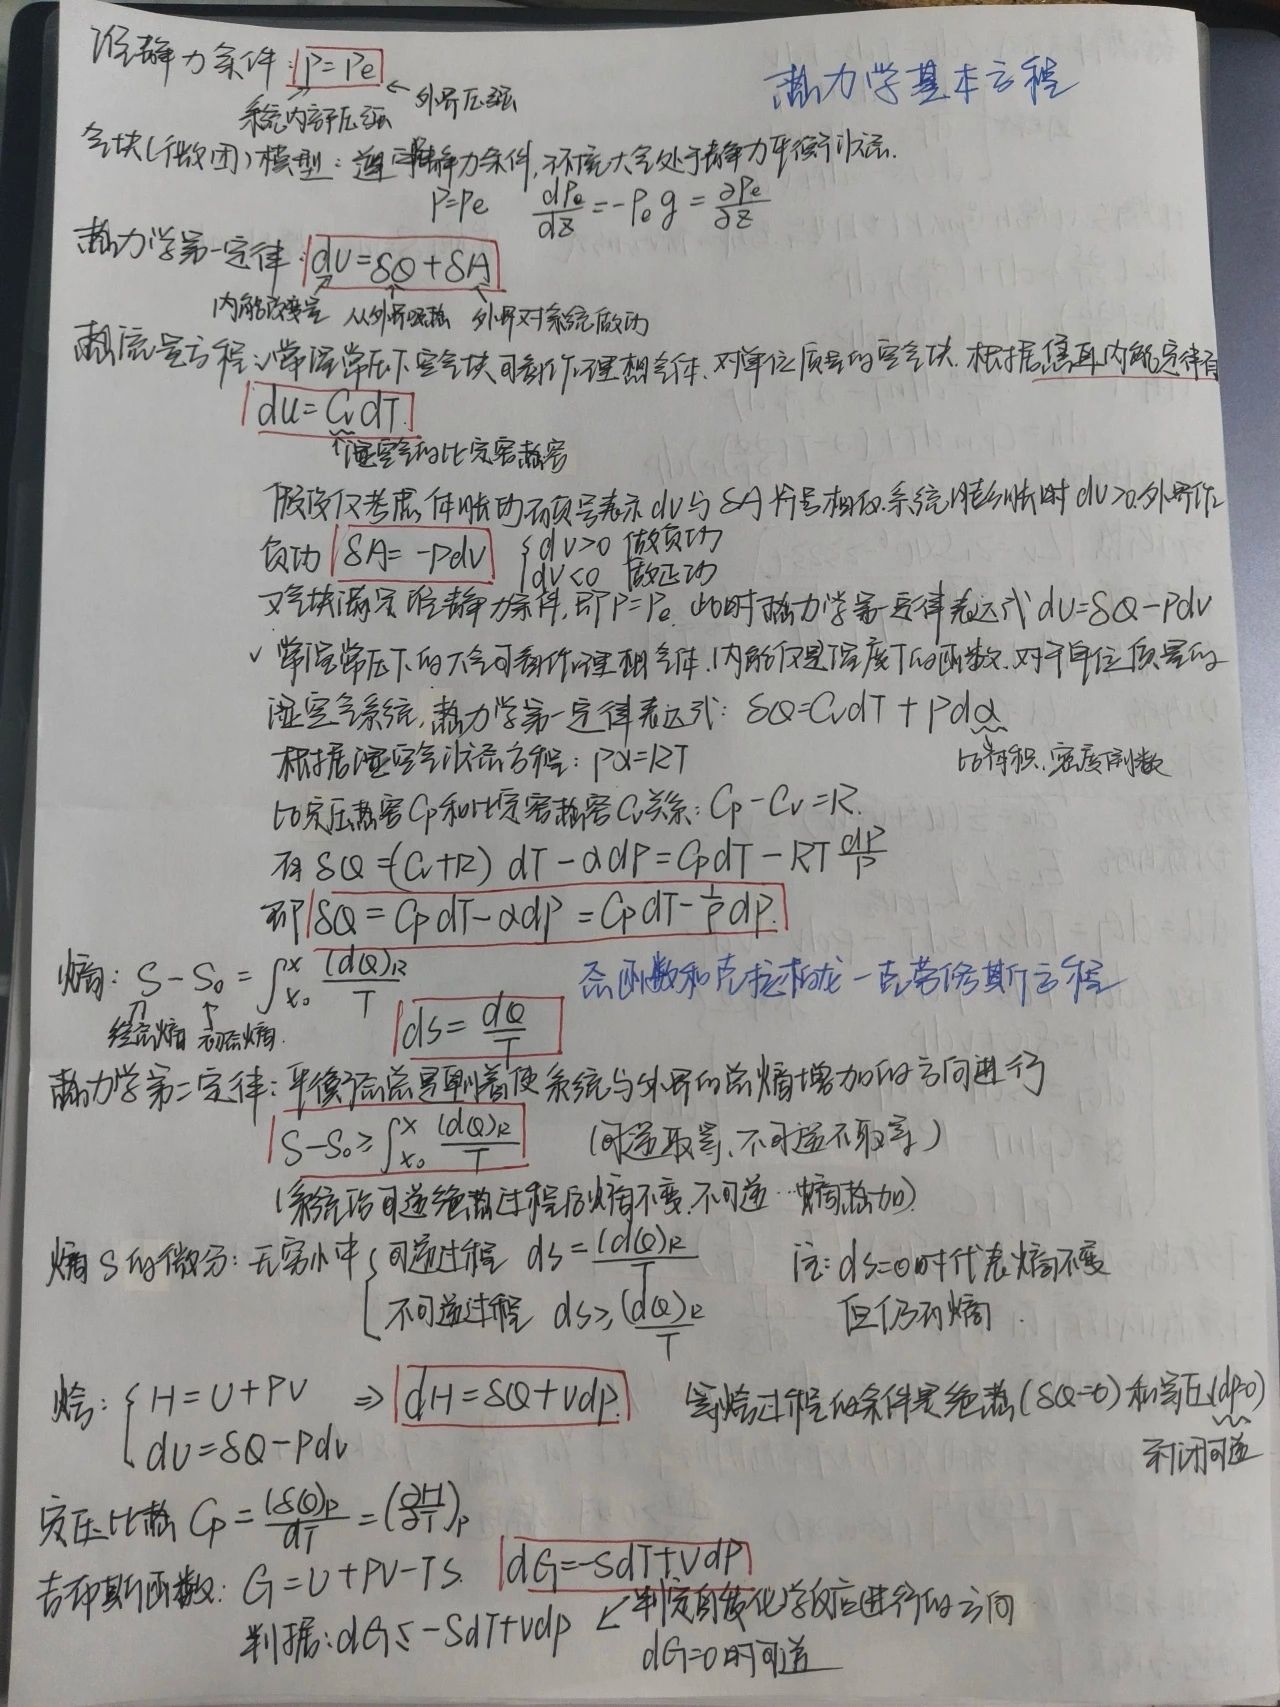 准静力条件: P=Pe
系统内部压强 外界压强
热力学基本方程
气块(微团)模型: 遵守准静力条件,环境大气处于静力平衡状态.
P=Pe dPe/dz=-ρe g=∂Pe/∂z
热力学第一定律: dU=δQ+δA
内能改变量 从外界吸热 外界对系统做功
热流量方程:√常温常压下空气块可看作理想气体.对单位质量的空气块.根据焦耳内能定律有
du=CvdT.
湿空气的比定容热容
假设仅考虑体胀功而负号表示dv与δA符号相反.系统膨胀时dv>0.外界作
负功 δA=-Pdv { dv>0 做负功
dv<0 做正功
又气块满足准静力条件,即P=Pe.此时热力学第一定律表达式dU=δQ-Pdv
√常温常压下的大气可看作理想气体.内能仅是温度T的函数.对于单位质量的
湿空气系统,热力学第一定律表达式: δQ=CvdT+Pdα
根据湿空气状态方程: Pα=RT
比容积.密度倒数
比定压热容Cp和比定容热容Cv关系: Cp-Cv=R.
有δQ=(Cv+R)dT-αdP=CpdT-RT dP/P
即 δQ=CpdT-αdP=CpdT-1/ρ dP.
熵: S-S₀=∫x₀^x (dQ)R/T
态函数和克拉柏龙-克劳修斯方程
终态熵 初态熵.
dS=dQ/T
热力学第二定律: 平衡态总是朝着使系统与外界的总熵增加的方向进行
S-S₀≥∫x₀^x (dQ)R/T (可逆取等、不可逆不取等)
(系统沿可逆绝热过程后熵不变.不可逆…熵增加)
熵S的微分: 无穷小中{ 可逆过程 dS=(dQ)R/T
不可逆过程 dS≥(dQ)R/T
注: dS=0时代表熵不变
但仍有熵.
焓: { H=U+PV ⇒ dH=δQ+Vdp.
dU=δQ-Pdv
等焓过程的条件是绝热(δQ=0)和等压(dp=0)
定压比热 Cp=(δQ)p/dT=(∂H/∂T)p
吉布斯函数: G=U+PV-TS. dG=-SdT+VdP
判据: dG≤-SdT+Vdp ← 判定自发化学反应进行的方向
dG=0时可逆